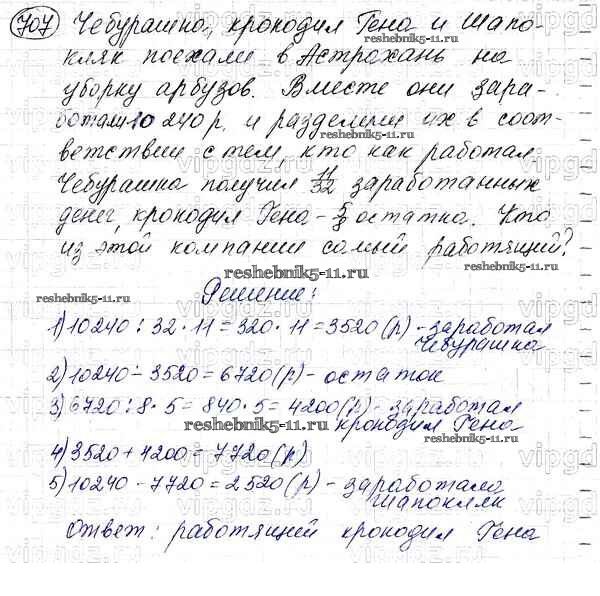 707 Чебурашка, крокодил Гена и Шапо-
кляк поехали в Астрахань на
уборку арбузов. Вместе они зара-
ботали 10 240 р. и разделили их в соот-
reshebnik5-11.ru
ветствии с тем, кто как работал.
Чебурашка получил 11/32 заработанных
денег, крокодил Гена - 5/8 остатка. Кто
из этой компании самый работящий?
reshebnik5-11.ru
Решение:
reshebnik5-11.ru
1) 10240 : 32 · 11 = 320 · 11 = 3520 (р) - заработал
Чебурашка
2) 10240 - 3520 = 6720 (р) - остаток
3) 6720 : 8 · 5 = 840 · 5 = 4200 (р) - заработал
reshebnik5-11.ru
крокодил Гена
4) 3520 + 4200 = 7720 (р)
5) 10240 - 7720 = 2520 (р) - заработала
Шапокляк
reshebnik5-11.ru
Ответ: работящий крокодил Гена